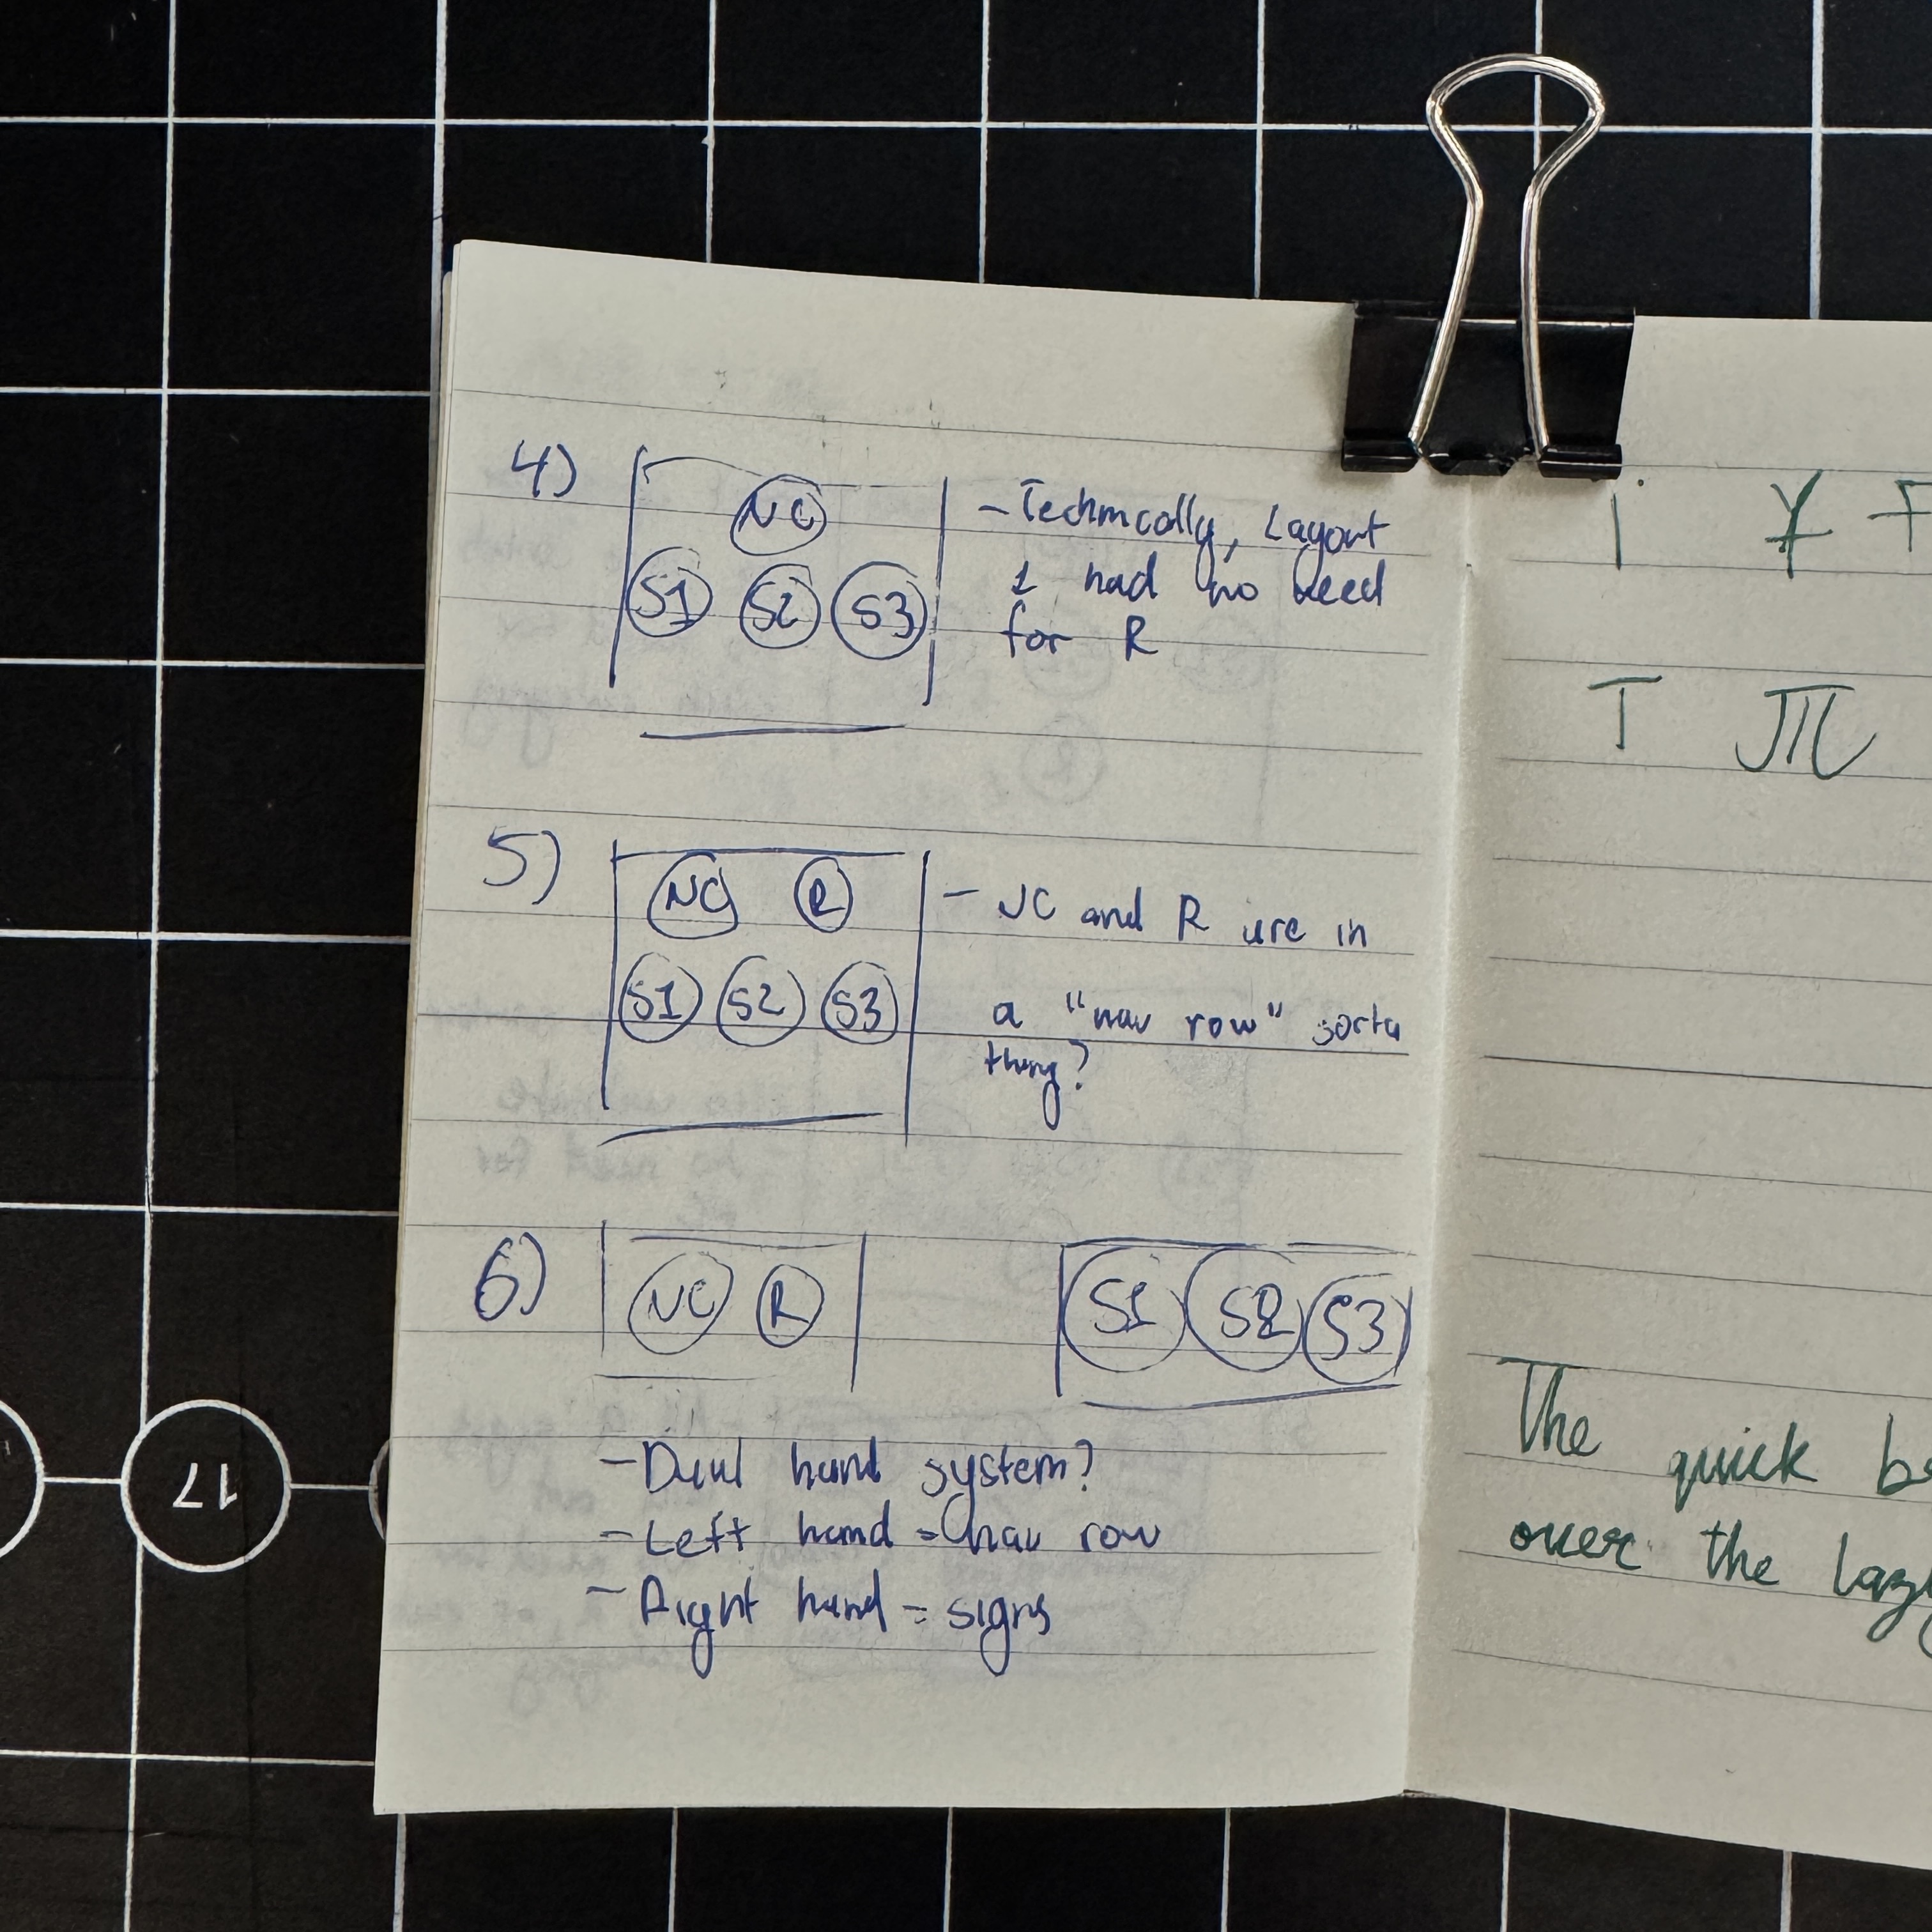 4)
NC
S1 S2 S3
- Technically, Layout
1 had no need
for R
5)
NC R
S1 S2 S3
- NC and R are in
a "nav row" sorta
thing?
6)
NC R
S1 S2 S3
- Dual hand system?
- Left hand = nav row
- Right hand = signs
T π
The quick
over the
17